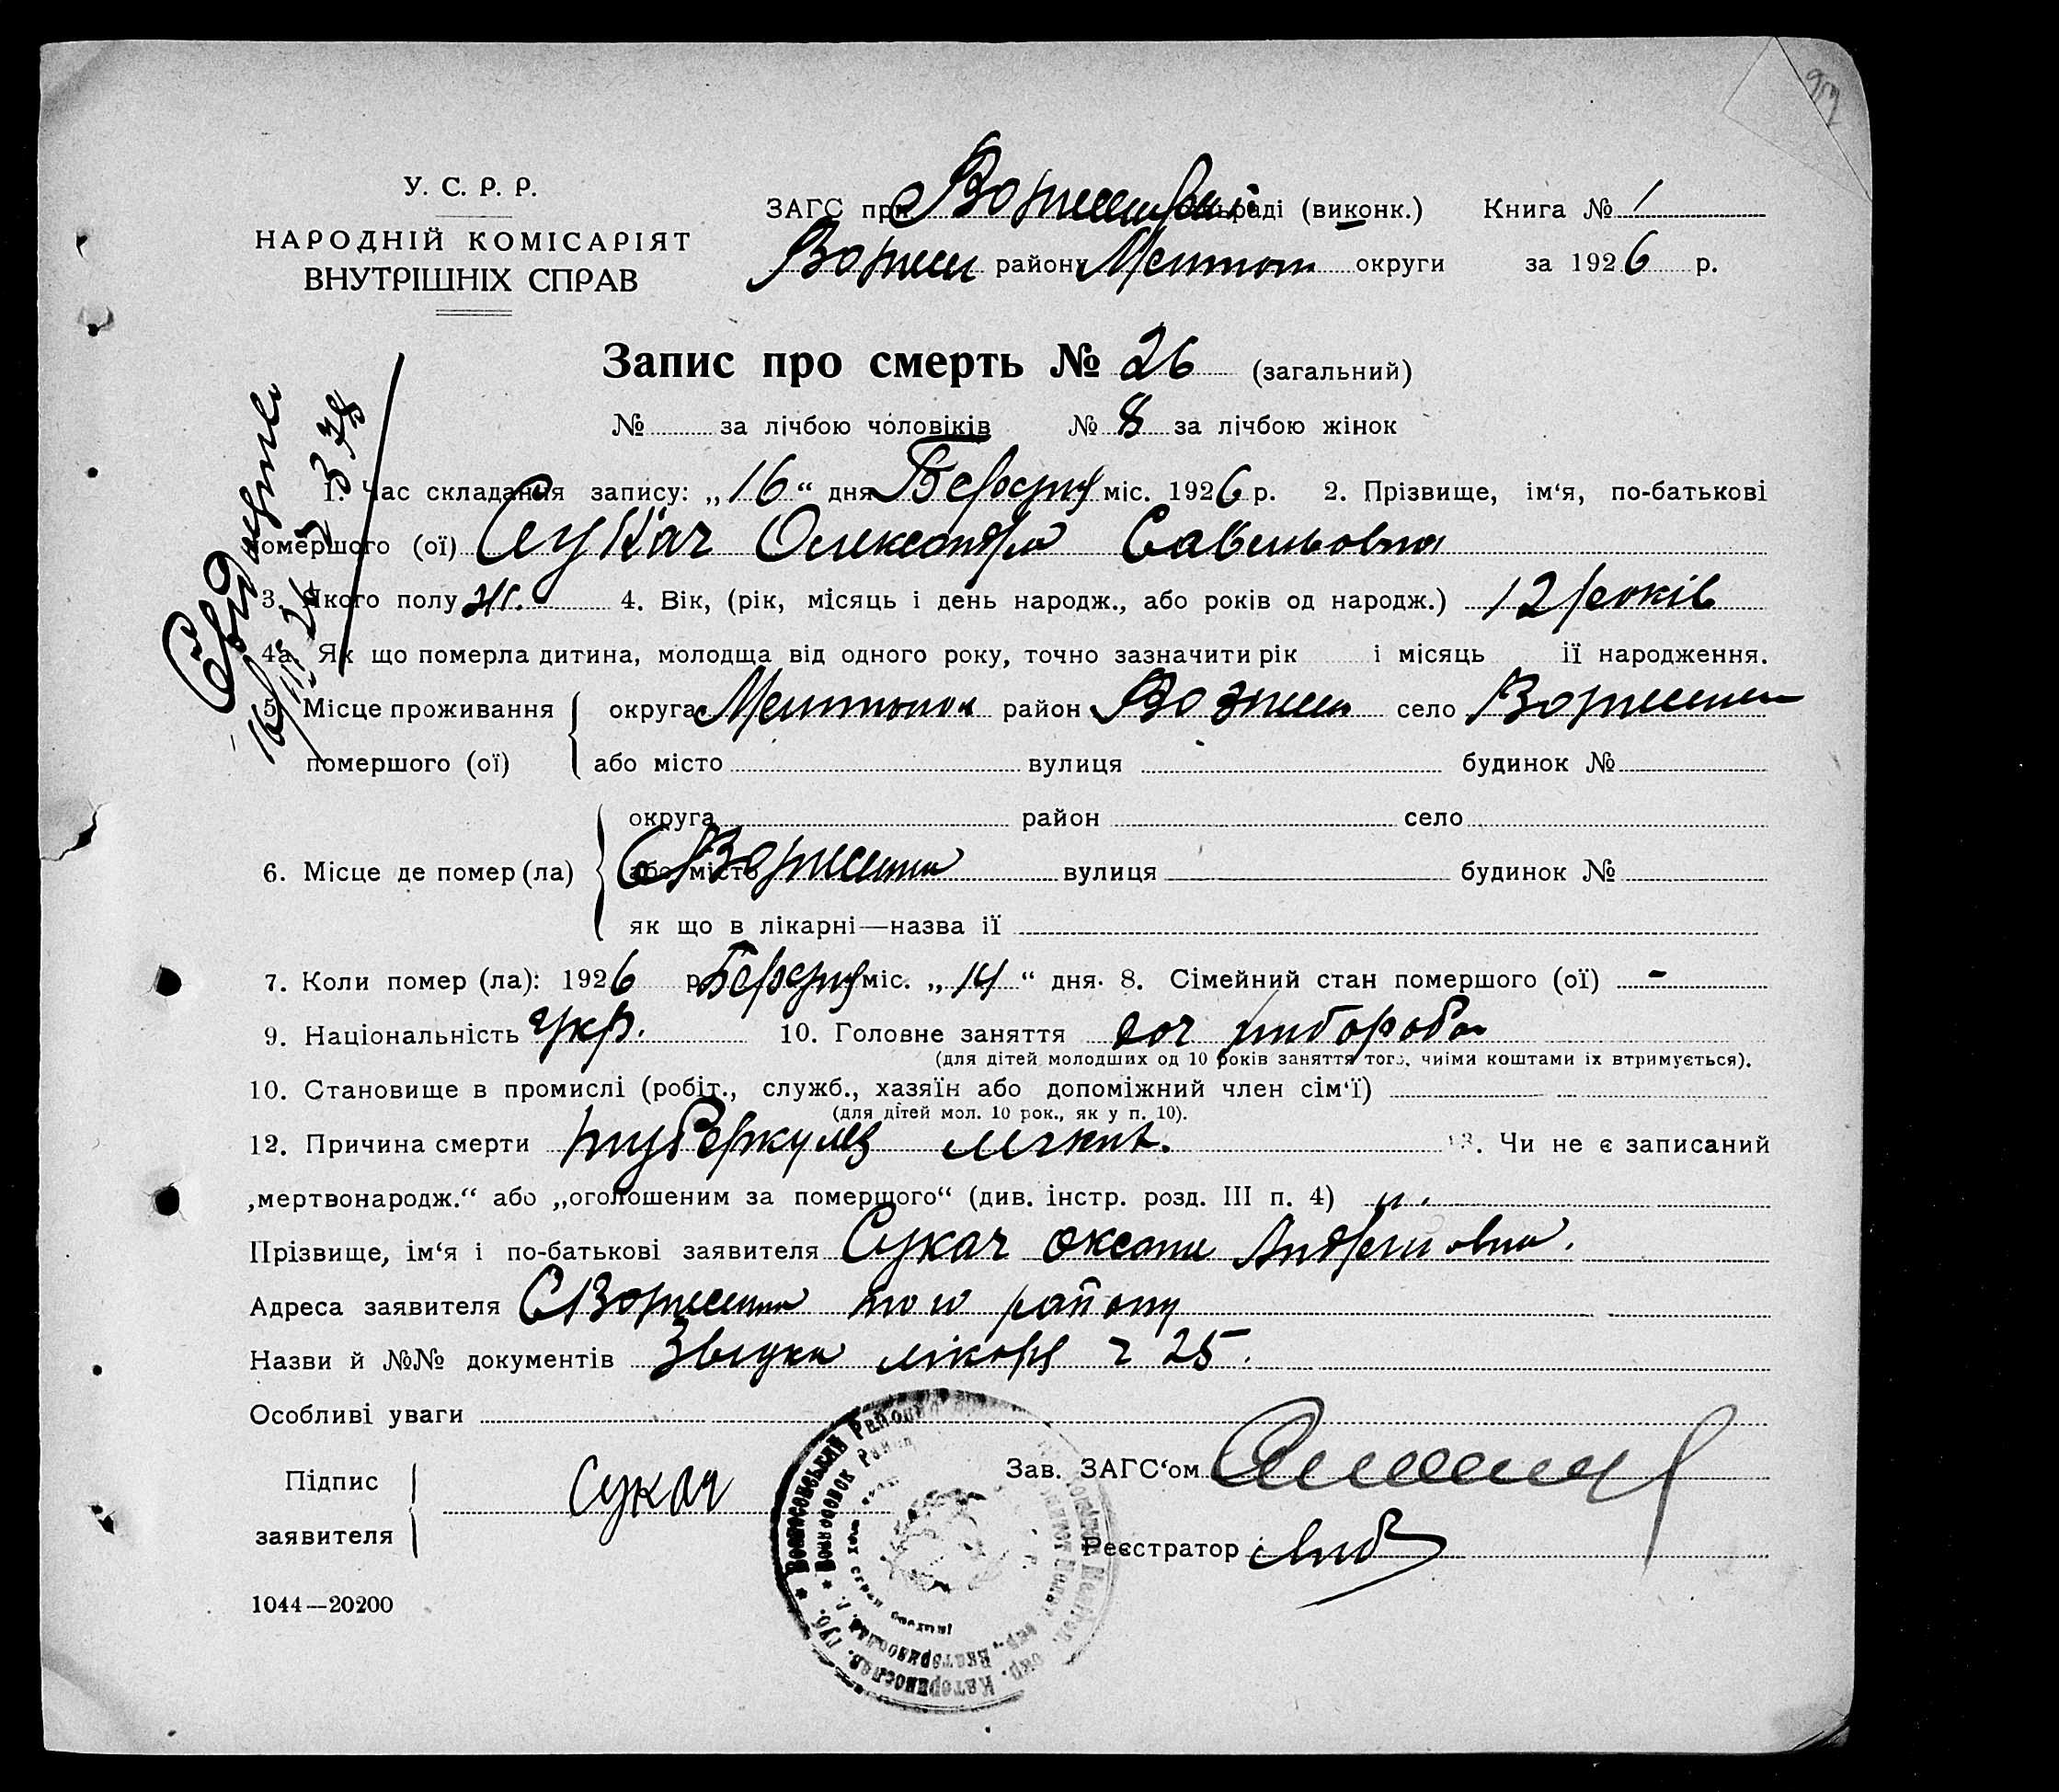 97
У. С. Р. Р.
НАРОДНІЙ КОМІСАРІЯТ
ВНУТРІШНІХ СПРАВ
ЗАГС при раді (виконк.) Книга № 1
Вознес району Мелитоп округи за 1926 р.
Запис про смерть № 26 (загальний)
№ за лічбою чоловіків № 8 за лічбою жінок
1. Час складання запису: „16“ дня Березня міс. 1926 р. 2. Прізвище, ім‘я, по-батькові
помершого (ої) Сукач Олександра Савельовна
3. Якого полу ж. 4. Вік, (рік, місяць і день народж., або років од народж.) 12 років
4а. Як що померла дитина, молодща від одного року, точно зазначити рік і місяць ії народження.
5. Місце проживання округа Мелитопол район Вознесен село Вознесенка
помершого (ої) або місто вулиця будинок №
округа район село
6. Місце де помер (ла) або місто С Вознесенка вулиця будинок №
як що в лікарні—назва ії
7. Коли помер (ла): 1926 р Березня міс. „14“ дня. 8. Сімейний стан помершого (ої) -
9. Національність Укр. 10. Головне заняття доч хлібороба
(для дітей молодших од 10 років заняття того, чиїми коштами їх втримується).
10. Становище в промислі (робіт., служб., хазяїн або допоміжний член сім‘ї)
(для дітей мол. 10 рок., як у п. 10).
12. Причина смерти туберкулез легких. 13. Чи не є записаний
„мертвонародж.“ або „оголошеним за помершого“ (див. інстр. розд. III п. 4) н.
Прізвище, ім‘я і по-батькові заявителя Сукач Оксана Андреийовна.
Адреса заявителя С Вознесенка того району
Назви й №№ документів Звідка лікаря ч 25.
Особливі уваги
Підпис
заявителя Сукач
Зав. ЗАГС‘ом
Реєстратор
1044—20200